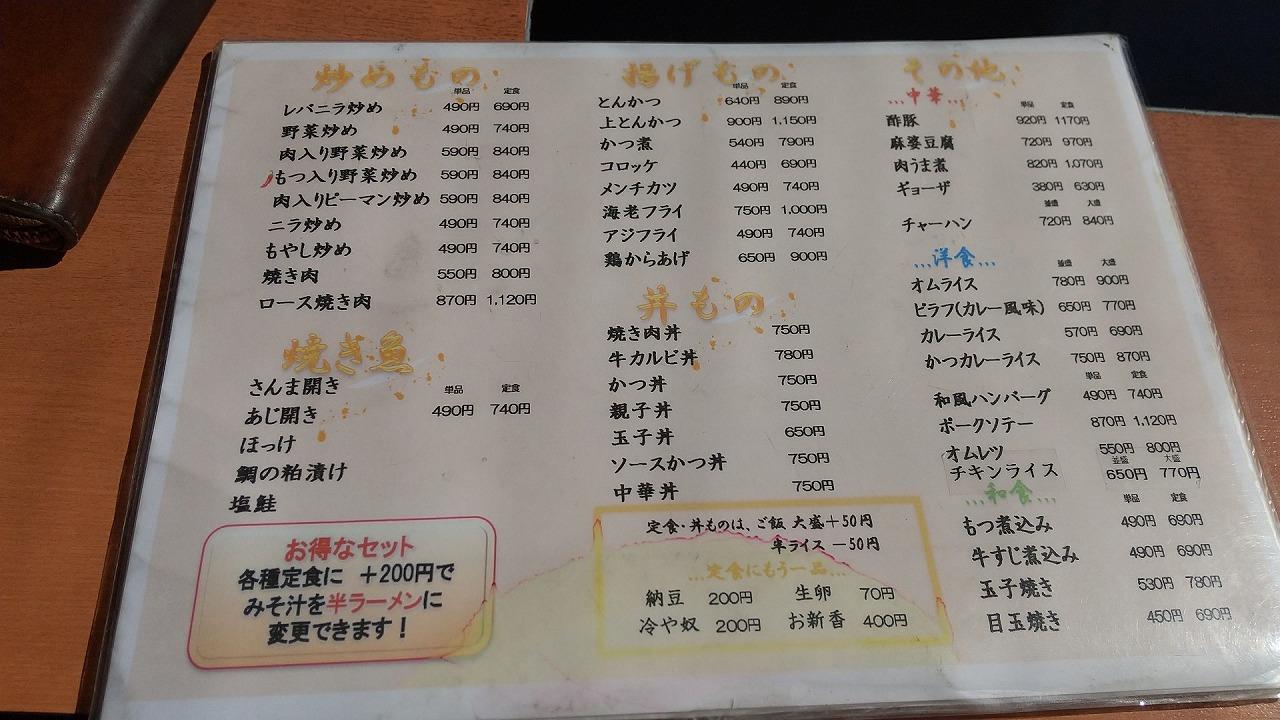 炒めもの
単品 定食
レバニラ炒め 490円 690円
野菜炒め 490円 740円
肉入り野菜炒め 590円 840円
もつ入り野菜炒め 590円 840円
肉入りピーマン炒め 590円 840円
ニラ炒め 490円 740円
もやし炒め 490円 740円
焼き肉 550円 800円
ロース焼き肉 870円 1,120円
焼き魚
単品 定食
さんま開き
あじ開き 490円 740円
ほっけ
鯛の粕漬け
塩鮭
お得なセット
各種定食に +200円で
みそ汁を半ラーメンに
変更できます!
揚げもの
単品 定食
とんかつ 640円 890円
上とんかつ 900円 1,150円
かつ煮 540円 790円
コロッケ 440円 690円
メンチカツ 490円 740円
海老フライ 750円 1,000円
アジフライ 490円 740円
鶏からあげ 650円 900円
丼もの
焼き肉丼 750円
牛カルビ丼 780円
かつ丼 750円
親子丼 750円
玉子丼 650円
ソースかつ丼 750円
中華丼 750円
定食・丼ものは、ご飯 大盛+50円
半ライス -50円
…定食にもう一品…
納豆 200円 生卵 70円
冷や奴 200円 お新香 400円
その他
…中華…
単品 定食
酢豚 920円 1170円
麻婆豆腐 720円 970円
肉うま煮 820円 1,070円
ギョーザ 380円 630円
並盛 大盛
チャーハン 720円 840円
…洋食…
並盛 大盛
オムライス 780円 900円
ピラフ(カレー風味) 650円 770円
カレーライス 570円 690円
かつカレーライス 750円 870円
単品 定食
和風ハンバーグ 490円 740円
ポークソテー 870円 1,120円
オムレツ 550円 800円
並盛 大盛
チキンライス 650円 770円
…和食…
単品 定食
もつ煮込み 490円 690円
牛すじ煮込み 490円 690円
玉子焼き 530円 780円
目玉焼き 450円 690円